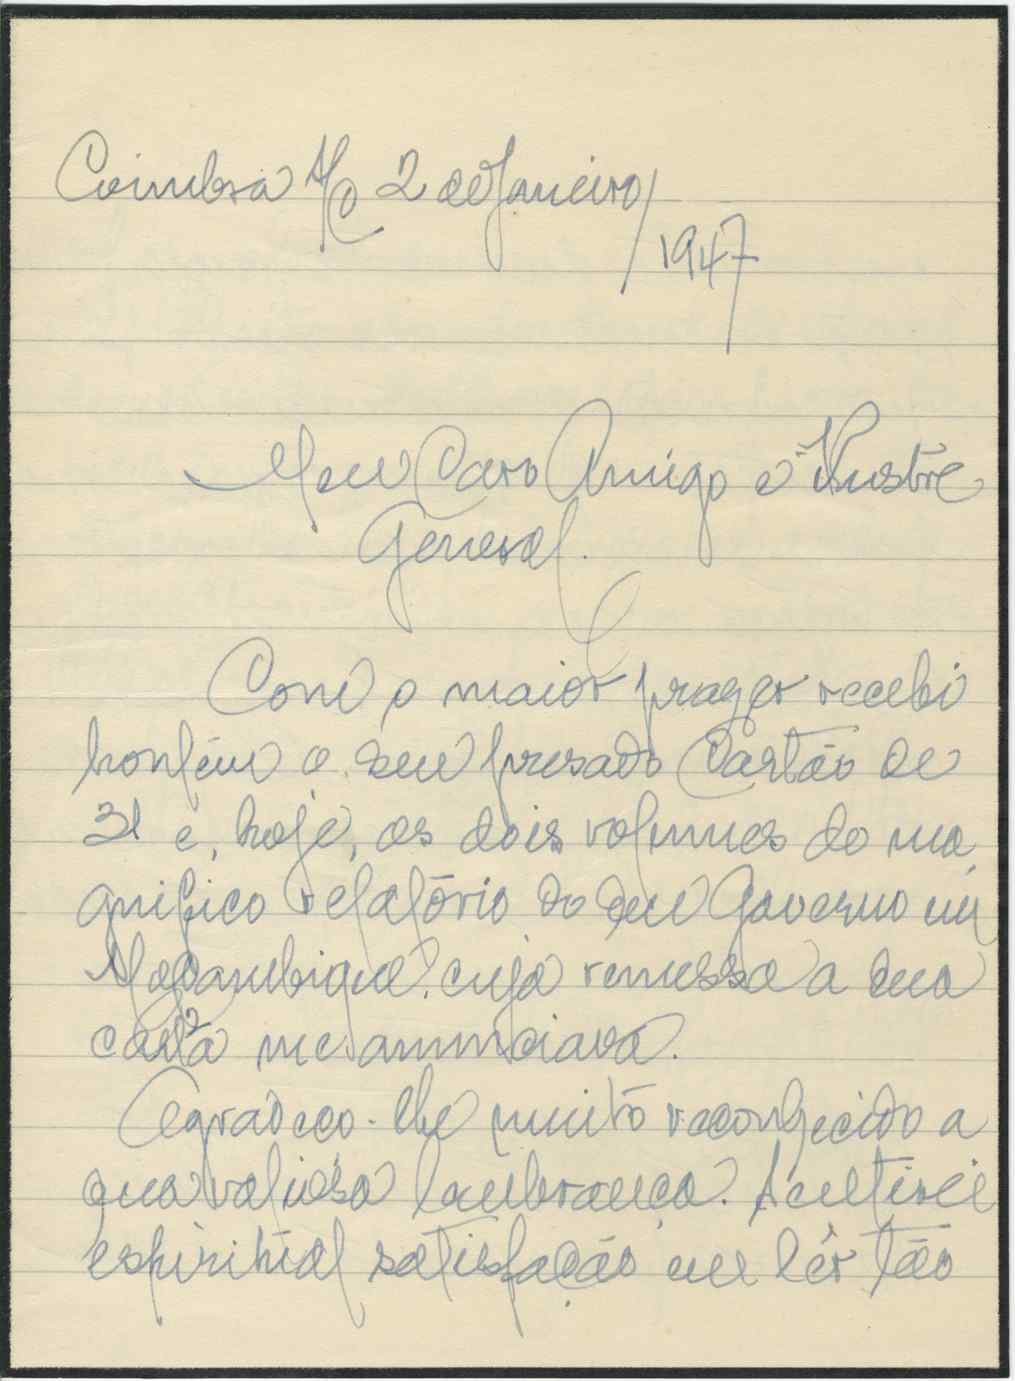 Coimbra S/C 2 de Janeiro/
1947
Meu Caro Amigo e Ilustre
General.
Com o maior prazer recebi
hontem o seu presado Cartão de
31 e, hoje, os dois volumes do ma
gnifico relatório do seu Governo em
Moçambique, cuja remessa a sua
carta me anunciava.
Agradeço-lhe muito reconhecido a
sua valiosa lembrança. Sentirei
espiritual satisfação em lêr tão